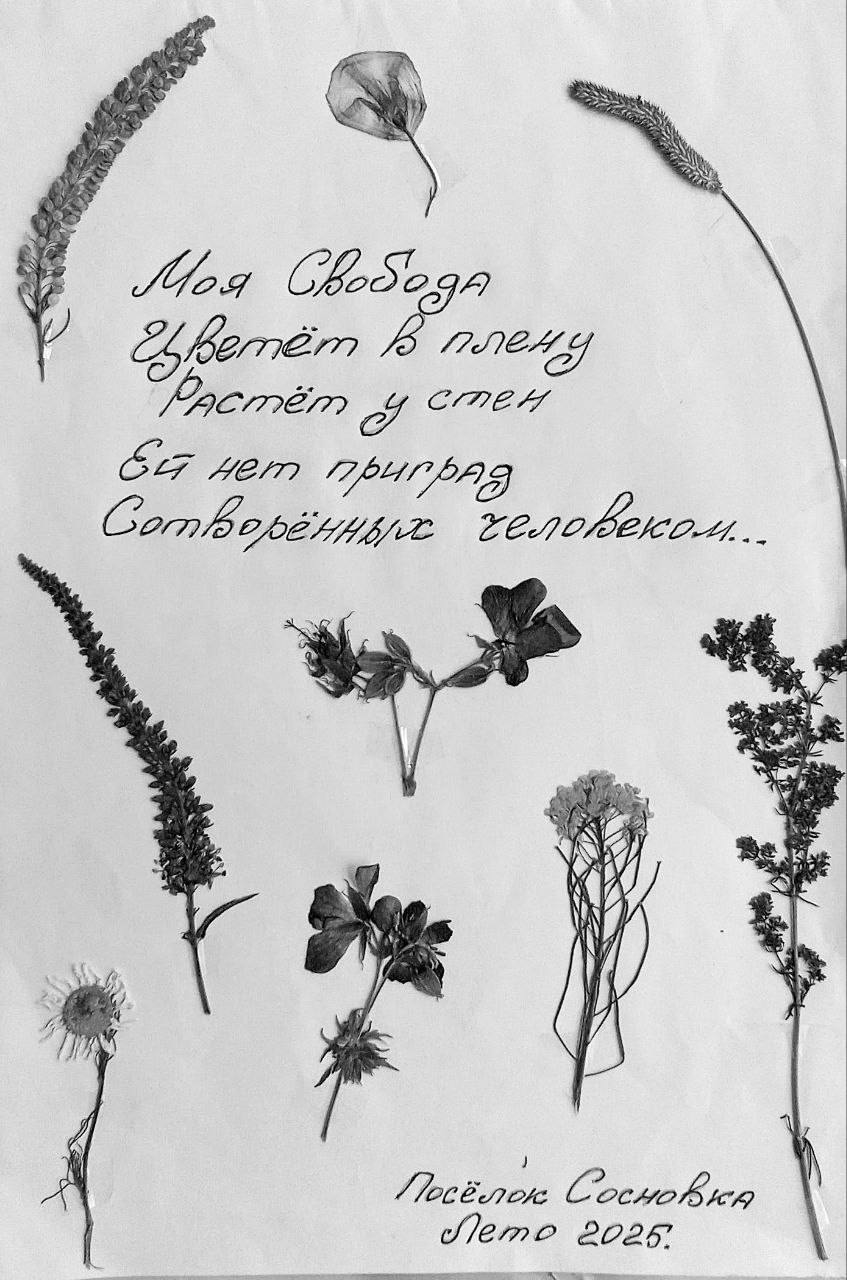 Моя Свобода
Цветёт в плену
Растёт у стен
Ей нет приград
Сотворённых человеком...
Посёлок Сосновка
Лето 2025.